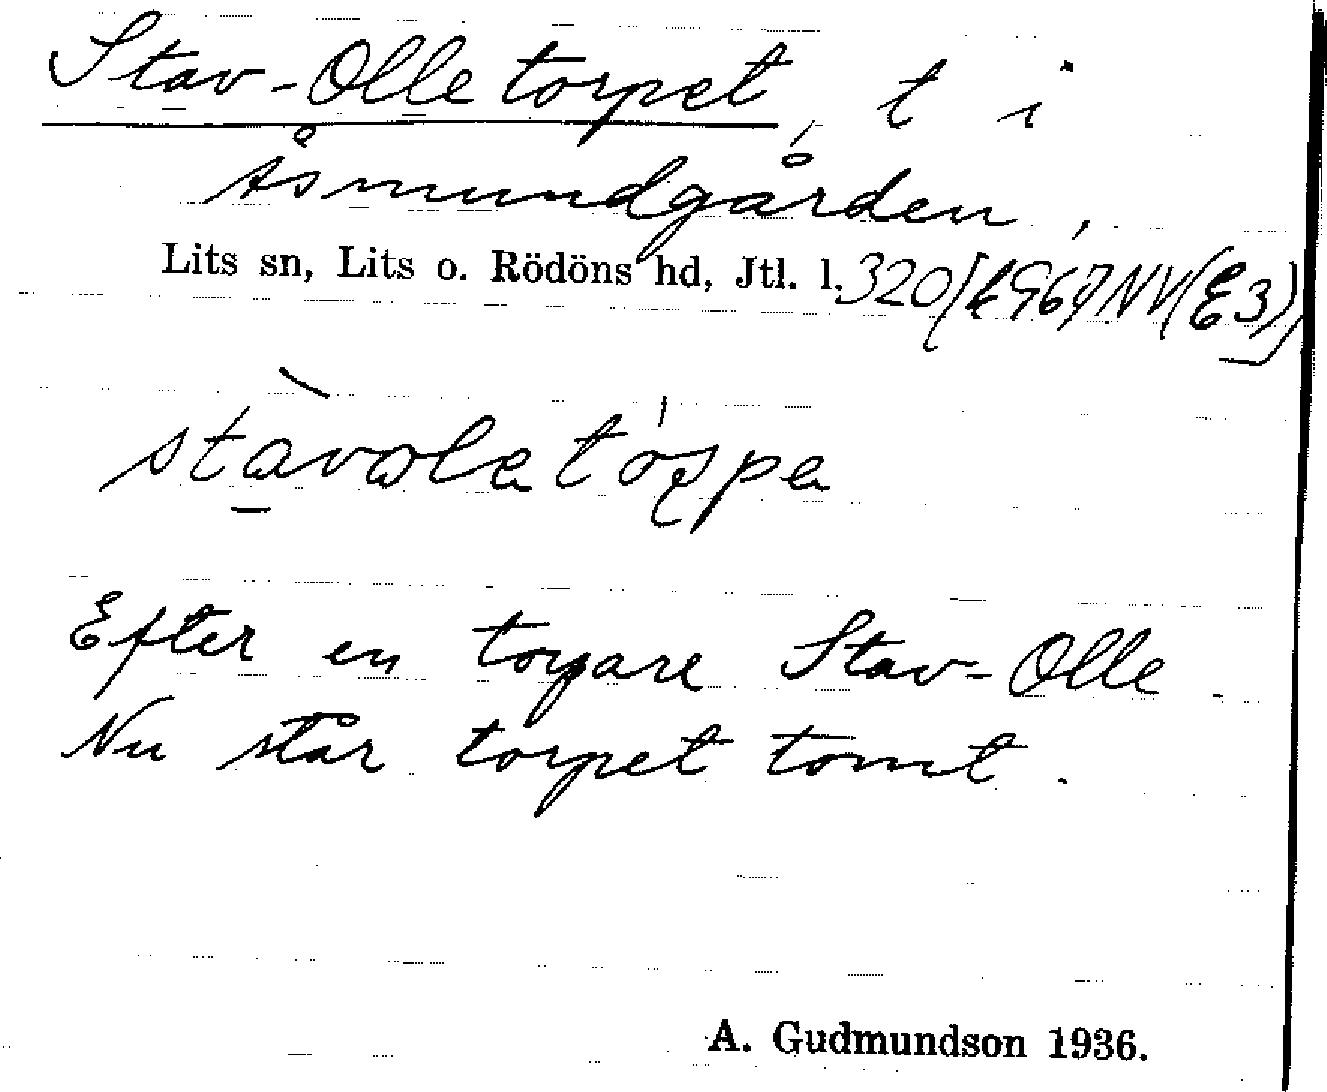 Stav-Olletorpet, t i
Åsmundgården,
Lits sn, Lits o. Rödöns hd, Jtl. l.
Efter en torpare Stav-Olle.
Nu står torpet tomt.
A. Gudmundson 1936.